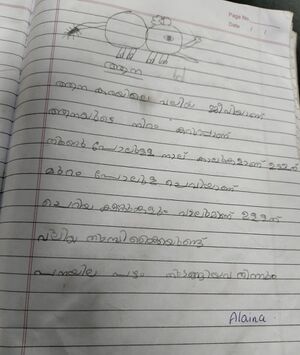 Page No.
Date / /
ആന
ആന കരയിലെ വലിയ ജീവിയാണ്
ആനയുടെ നിറം കറുപ്പാണ്
തൂണു പോലുള്ള നാല് കാലുകളാണ് ഉള്ളത്
മുറം പോലുള്ള ചെവിയാണ്
ചെറിയ കണ്ണുകളും വാലുമാണ് ഉള്ളത്
വലിയ തുമ്പിക്കൈയുണ്ട്
പനയോല പഴം തിന്നും
Alaina